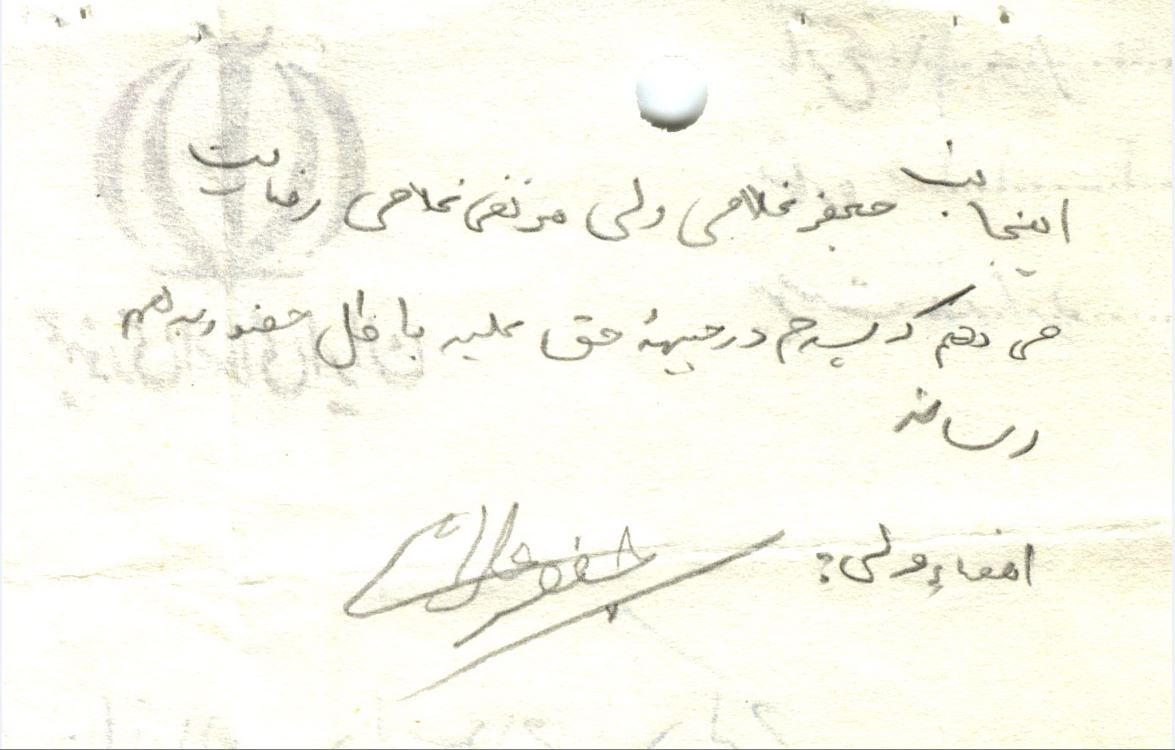 اینجانب جعفر غلامی ولی مرتضی غلامی رضایت
می دهم که پسرم در جبههٔ حق علیه باطل حضور بهم
رساند
امضاء ولی: